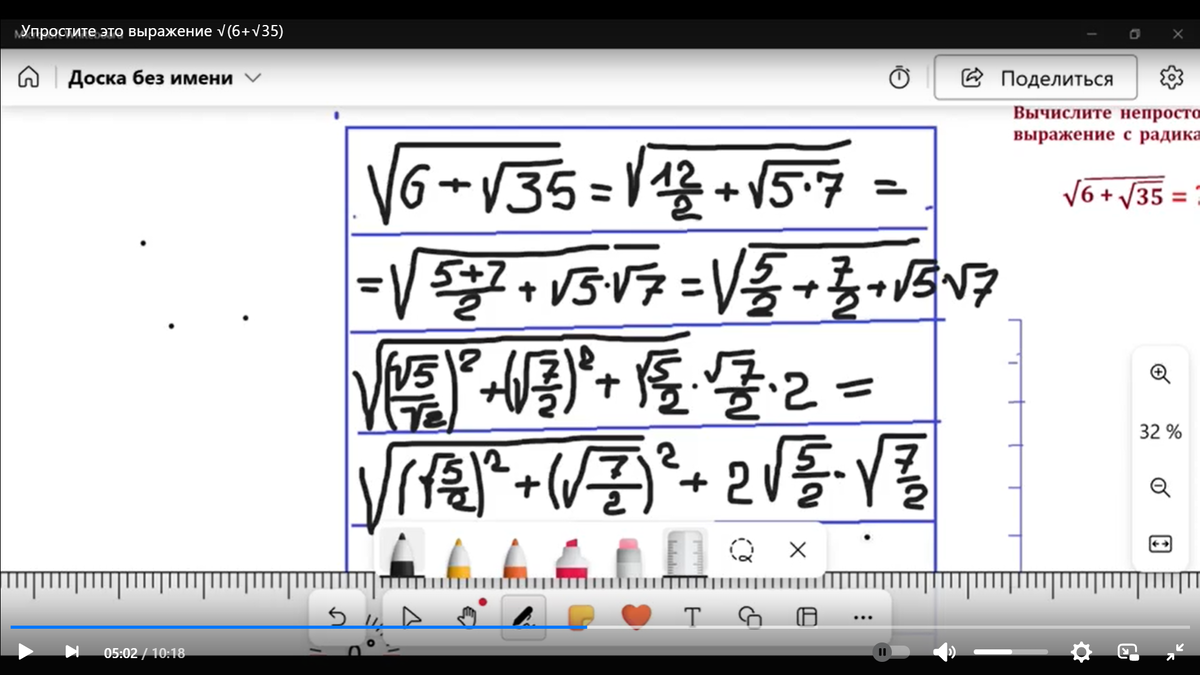 Упростите это выражение √(6+√35)
Доска без имени
Поделиться
Вычислите непросто
выражение с радика
√(6 + √35) = ?
√(6 + √35) = √(12/2 + √(5·7)) =
= √((5+7)/2 + √5·√7) = √(5/2 + 7/2 + √5·√7)
√((√5/√2)² + (√(7/2))² + √5/2 · √7/2 · 2 =
√((√(5/2))² + (√(7/2))² + 2√(5/2) · √(7/2)
32 %
05:02 / 10:18